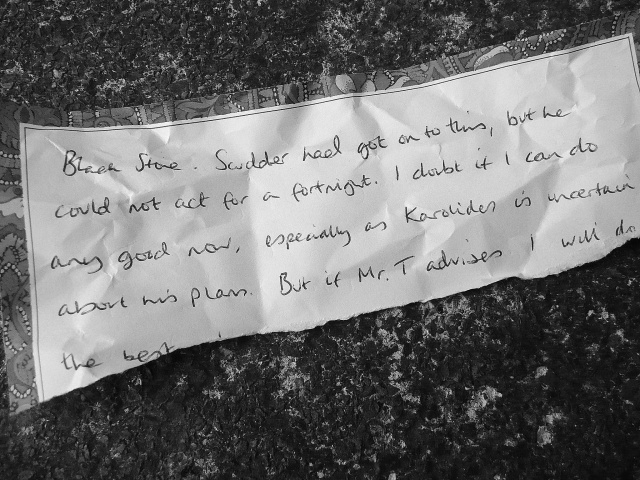 Black Stone. Scudder had got on to this, but he
could not act for a fortnight. I doubt if I can do
any good now, especially as Karolides is uncertain
about his plans. But if Mr. T advises I will do
the best